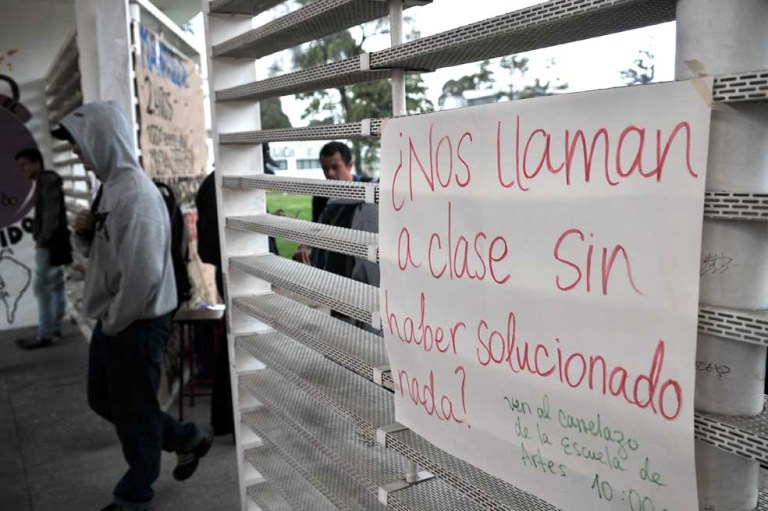 ¿Nos llaman
a clase sin
haber solucionado
nada?
ven al canelazo
de la Escuela de
Artes 10:00